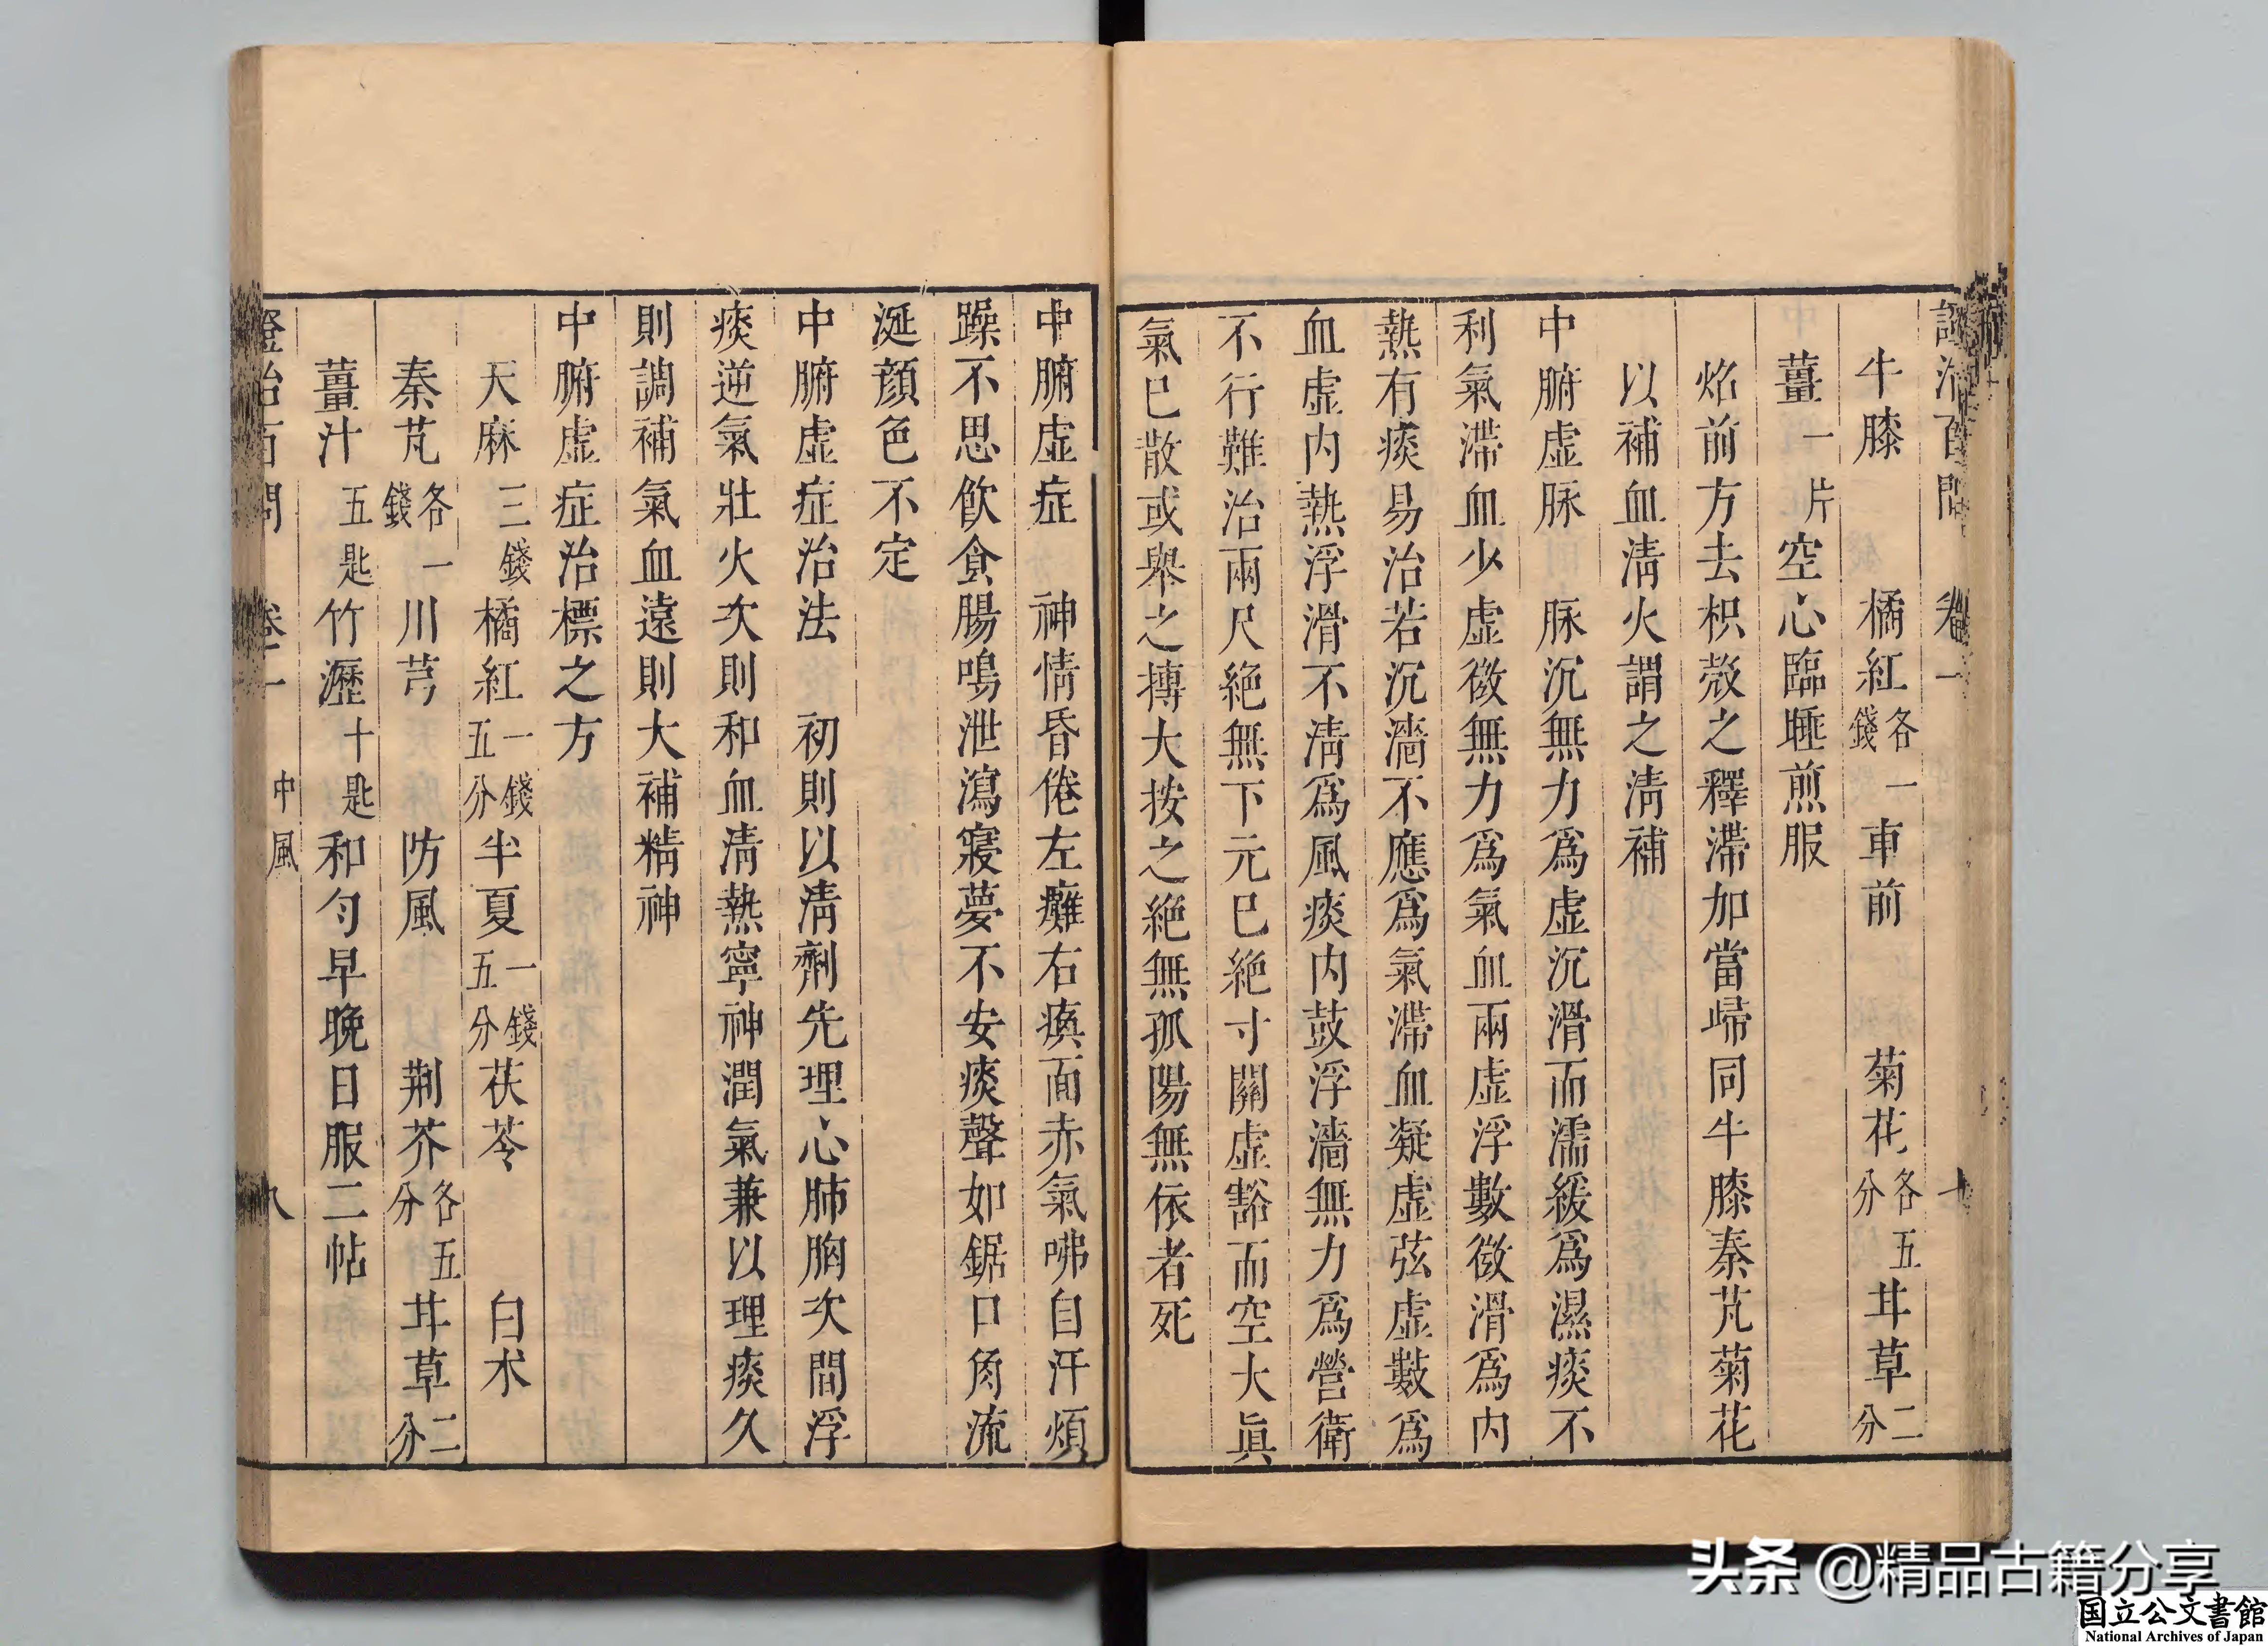 證治百問 卷一
牛膝 橘紅各一錢 車前 菊花各五分 甘草二分
薑一片 空心臨睡煎服
焰前方去枳殼之釋滯加當歸同牛膝秦艽菊花
以補血淸火謂之淸補
中腑虛脉 脉沉無力爲虛沉滑而濡緩爲濕痰不
利氣滯血少虛微無力爲氣血兩虛浮數微滑爲内
熱有痰易治若沉濇不應爲氣滯血凝虛弦虛數爲
血虛内熱浮滑不淸爲風痰内鼓浮濇無力爲營衛
不行難治兩尺絶無下元已絶寸關虛豁而空大眞
氣已散或舉之摶大按之絶無孤陽無依者死
中腑虛症 神情昏倦左癱右瘓面赤氣咈自汗煩
躁不思飲食腸鳴泄瀉寢夢不安痰聲如鋸口角流
涎顔色不定
中腑虛症治法 初則以淸劑先理心肺胸次間浮
痰逆氣壯火次則和血淸熱寧神潤氣兼以理痰久
則調補氣血遠則大補精神
中腑虛症治標之方
天麻三錢 橘紅一錢五分 半夏一錢五分 茯苓 白术
秦艽各一錢 川芎 防風 荆芥各五分 甘草二分
薑汁五匙 竹瀝十匙 和勻早晚日服二帖
證治百問 卷一 中風 八
頭条 @精品古籍分享
国立公文書館
National Archives of Japan